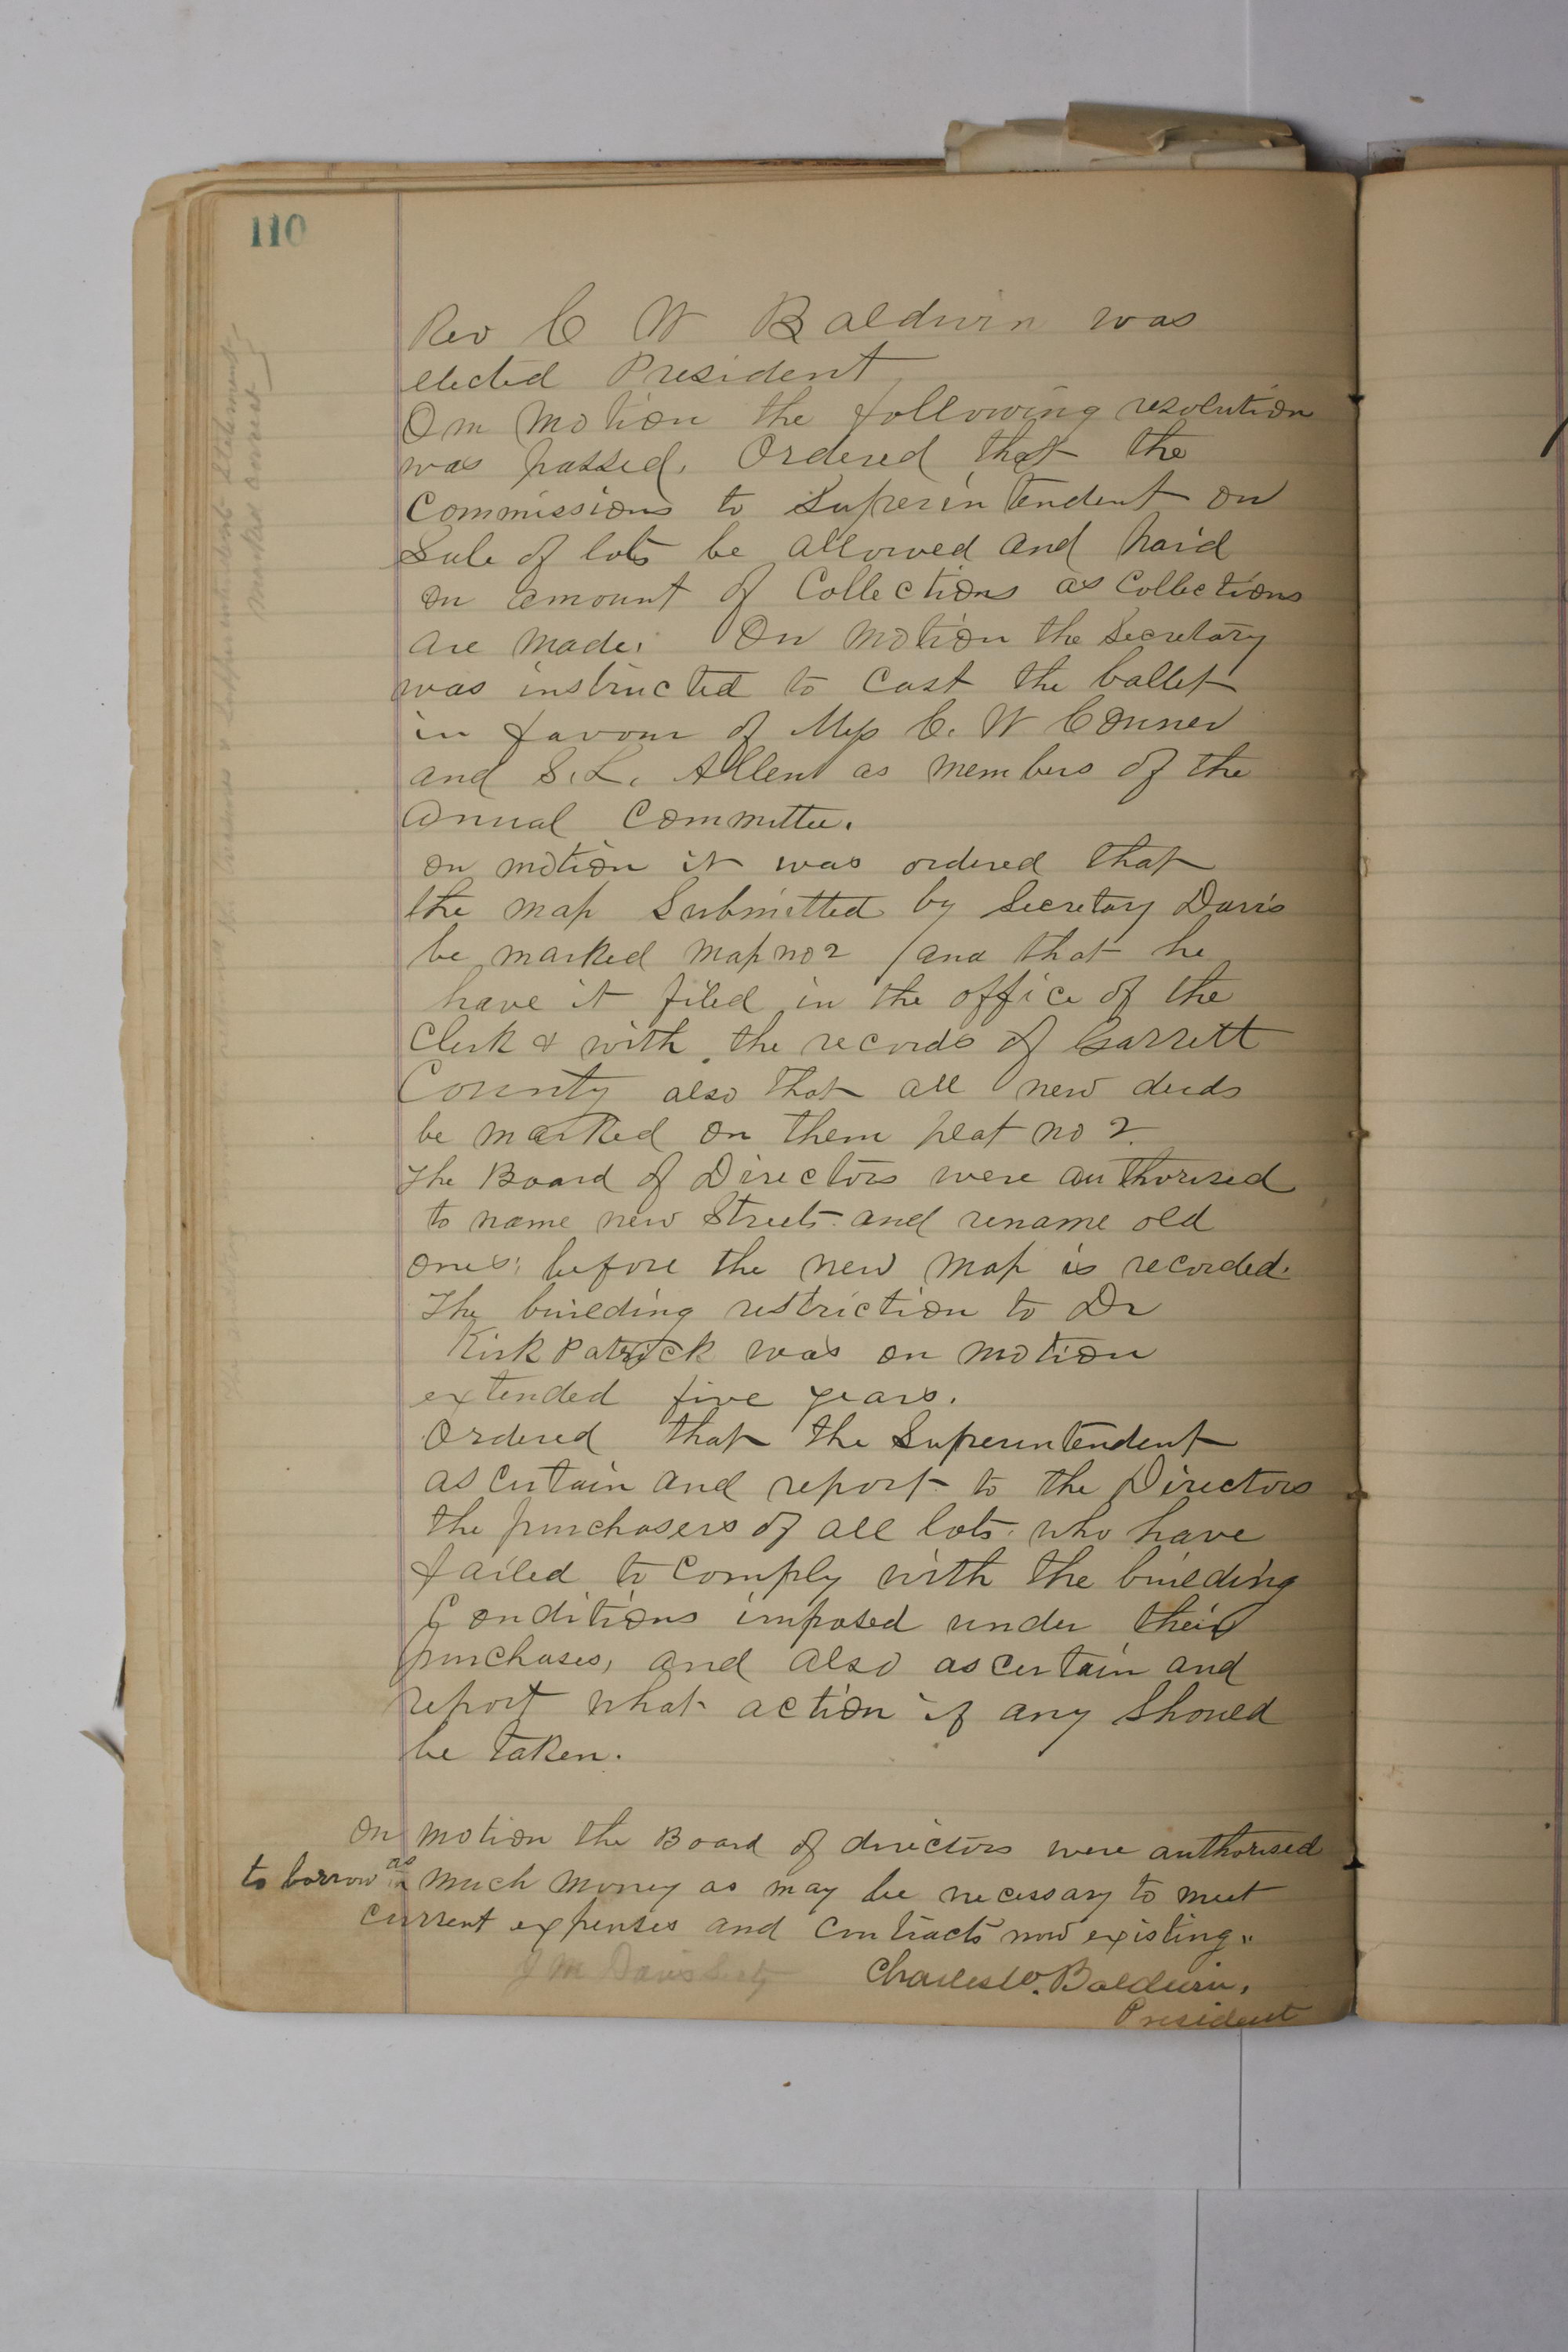 110
Rev C W Baldwin was
elected President
On motion the following resolution
was passed. Ordered that the
Commissions to Superintendent on
Sale of lots be allowed and paid
on amount of Collections as Collections
are made. On motion the Secretary
was instructed to cast the ballet
in favour of C. W Conner
and S. L. Allen as members of the
Annual Committee.
on motion it was ordered that
the map Submitted by Secretary Davis
be marked map no 2 and that he
have it filed in the office of the
Clerk & with the records of Garrett
County also that all new deeds
be marked on them plat no 2.
The Board of Directors were authorised
to name new Streets and rename old
ones, before the new map is recorded.
The building restriction to Dr
KirkPatrick was on motion
extended five years.
Ordered that the Superintendent
ascertain and report to the Directors
the purchasers of all lots who have
failed to Comply with the building
Conditions imposed under their
purchases, and also ascertain and
report what action if any Should
be taken.
On motion the Board of directors were authorised
to borrow as much money as may be necessary to meet
current expenses and contracts now existing.
J M Davis Secty Charles W. Baldwin,
President
Superintendents Statement